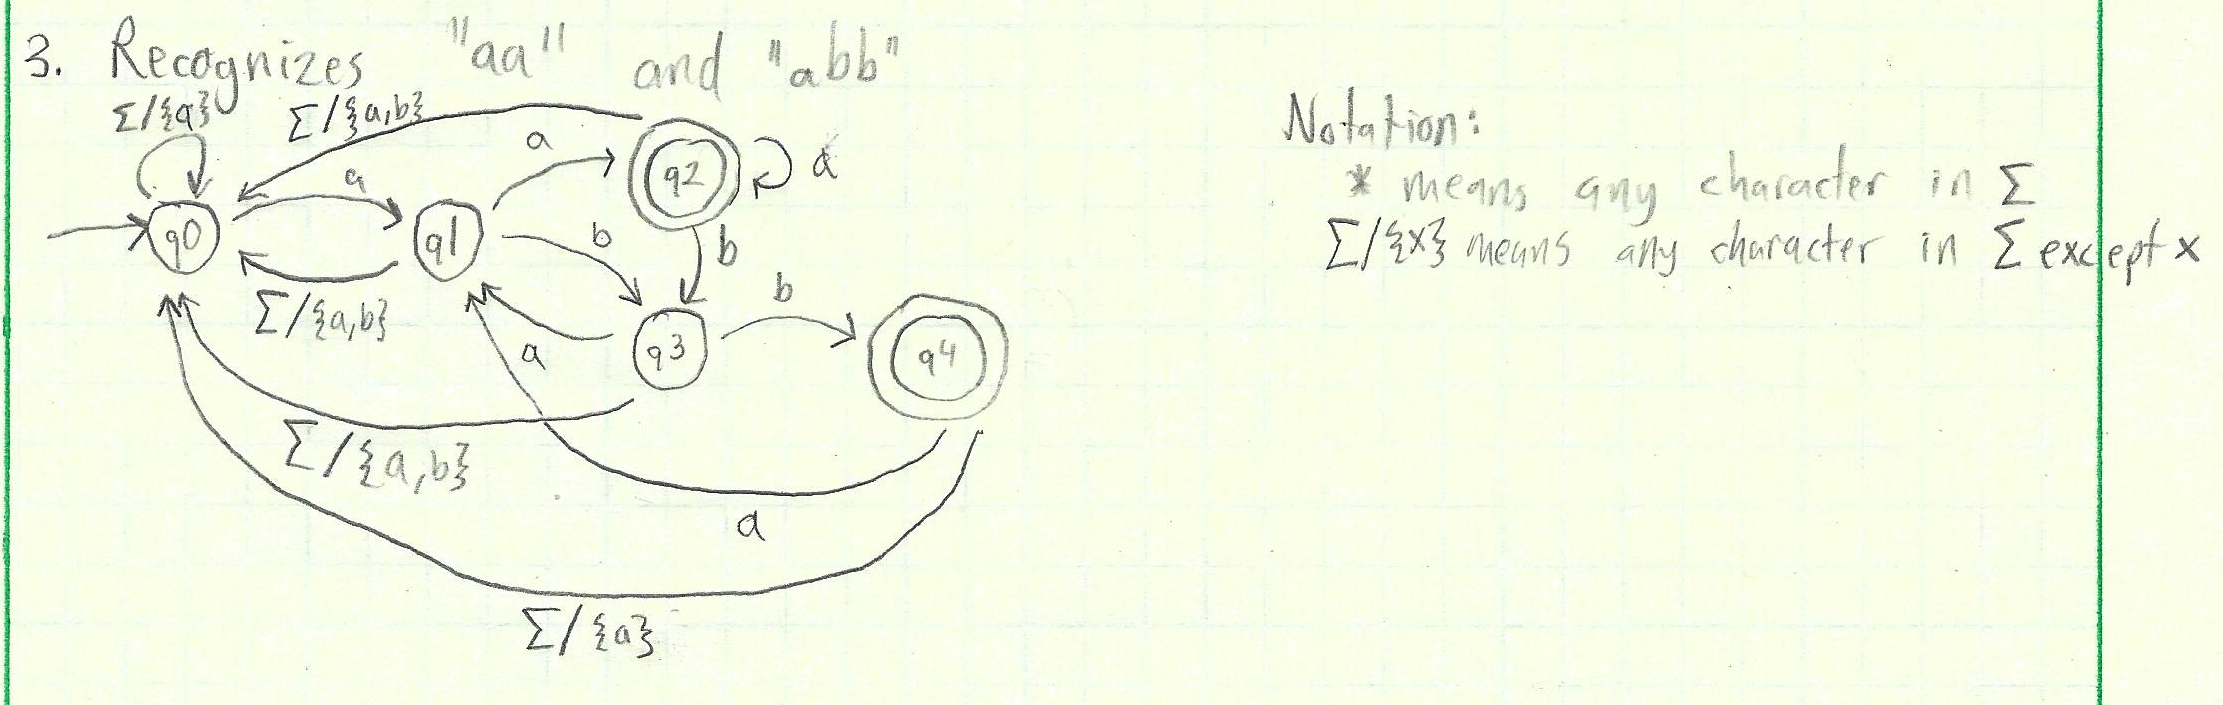 3. Recognizes "aa" and "abb"
Σ/{a}
Σ/{a,b}
a
a
q2
a
q0
a
q1
b
b
Σ/{a,b}
a
q3
b
q4
Σ/{a,b}
a
Σ/{a}
Notation:
* means any character in Σ
Σ/{x} means any character in Σ except x